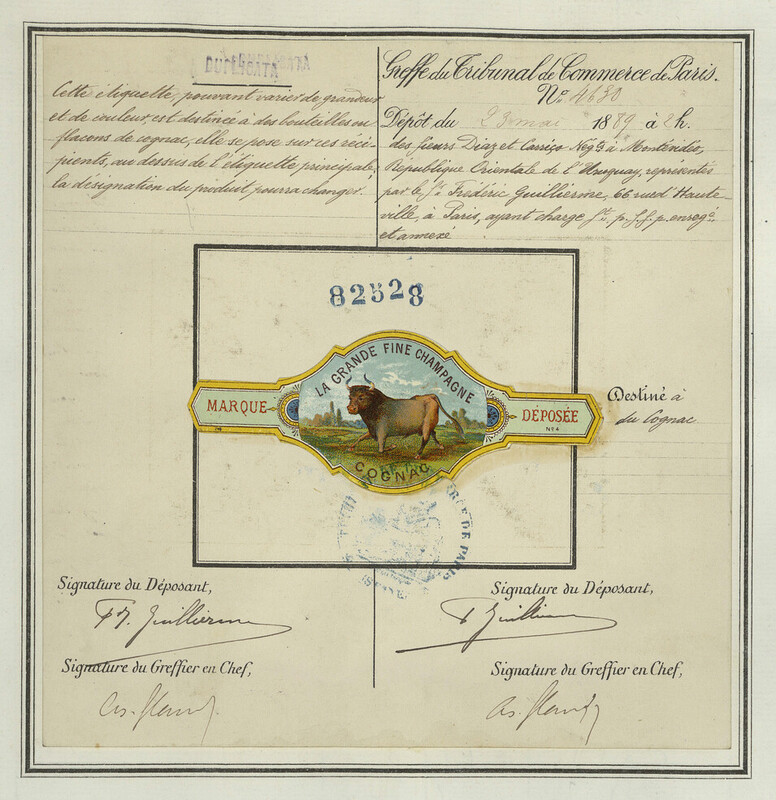 DUPLICATA
Cette étiquette, pouvant varier de grandeur
et de couleur, est destinée à des bouteilles ou
flacons de cognac, elle se pose sur ces réci-
pients, au dessus de l'étiquette principale,
la désignation du produit pourra changer.
Greffe du Tribunal de Commerce de Paris.
No. 4630
Dépôt du 2 mai 1889 à 2 h.
des sieurs Diaz et Carrico Negts à Montévidéo,
République Orientale de l'Uruguay, représentés
par le Sr. Frédéric Guillierme, 66 rue d'Haute-
ville, à Paris, ayant charge
et annexé
82528
LA GRANDE FINE CHAMPAGNE
MARQUE DÉPOSÉE
No 4
COGNAC
DE PARIS
Destiné à
du Cognac
Signature du Déposant,
Signature du Déposant,
F. Guillierme
Guillierme
Signature du Greffier en Chef,
Signature du Greffier en Chef,